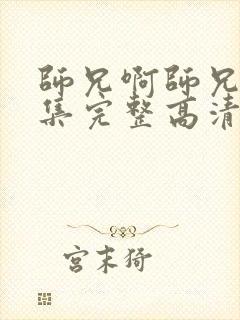 師兄啊師兄
集完整高清
宮末猗